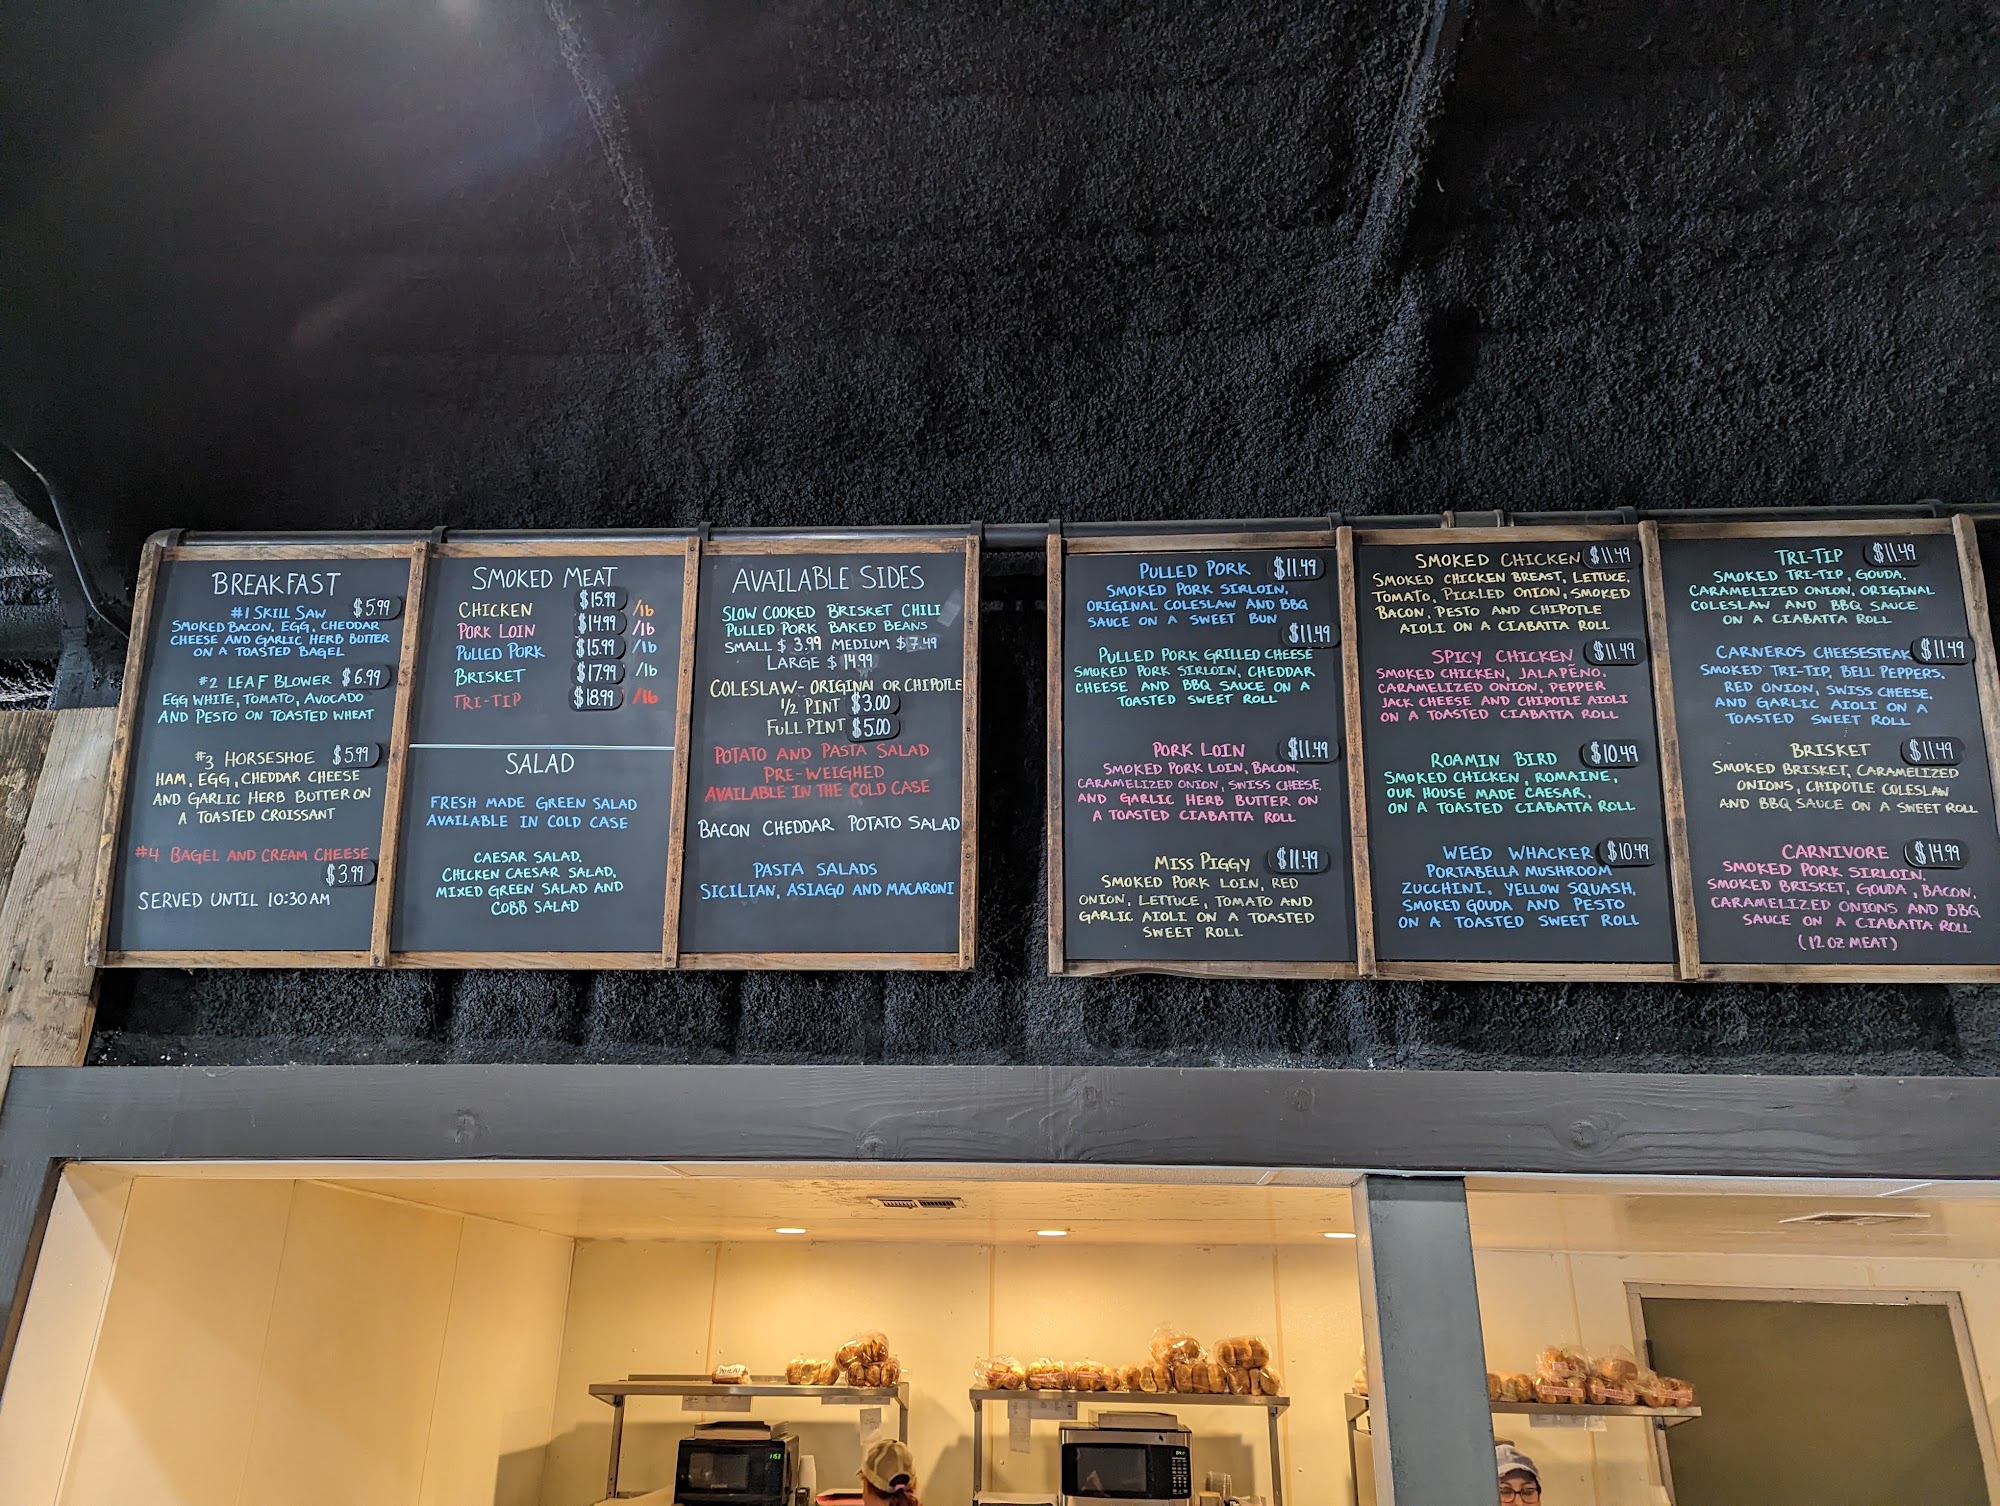 BREAKFAST
#1 SKILL SAW $5.99
SMOKED BACON, EGG, CHEDDAR
CHEESE AND GARLIC HERB BUTTER
ON A TOASTED BAGEL
#2 LEAF BLOWER $6.99
EGG WHITE, TOMATO, AVOCADO
AND PESTO ON TOASTED WHEAT
#3 HORSESHOE $5.99
HAM, EGG, CHEDDAR CHEESE
AND GARLIC HERB BUTTER ON
A TOASTED CROISSANT
#4 BAGEL AND CREAM CHEESE
$3.99
SERVED UNTIL 10:30 AM
SMOKED MEAT
CHICKEN $15.99 /lb
PORK LOIN $14.99 /lb
PULLED PORK $15.99 /lb
BRISKET $17.99 /lb
TRI-TIP $18.99 /lb
SALAD
FRESH MADE GREEN SALAD
AVAILABLE IN COLD CASE
CAESAR SALAD,
CHICKEN CAESAR SALAD,
MIXED GREEN SALAD AND
COBB SALAD
AVAILABLE SIDES
SLOW COOKED BRISKET CHILI
PULLED PORK BAKED BEANS
SMALL $3.99 MEDIUM $7.49
LARGE $14.99
COLESLAW- ORIGINAL OR CHIPOTLE
1/2 PINT $3.00
FULL PINT $5.00
POTATO AND PASTA SALAD
PRE-WEIGHED
AVAILABLE IN THE COLD CASE
BACON CHEDDAR POTATO SALAD
PASTA SALADS
SICILIAN, ASIAGO AND MACARONI
PULLED PORK $11.49
SMOKED PORK SIRLOIN,
ORIGINAL COLESLAW AND BBQ
SAUCE ON A SWEET BUN
$11.49
PULLED PORK GRILLED CHEESE
SMOKED PORK SIRLOIN, CHEDDAR
CHEESE AND BBQ SAUCE ON A
TOASTED SWEET ROLL
PORK LOIN $11.49
SMOKED PORK LOIN, BACON,
CARAMELIZED ONION, SWISS CHEESE,
AND GARLIC HERB BUTTER ON
A TOASTED CIABATTA ROLL
MISS PIGGY $11.49
SMOKED PORK LOIN, RED
ONION, LETTUCE, TOMATO AND
GARLIC AIOLI ON A TOASTED
SWEET ROLL
SMOKED CHICKEN $11.49
SMOKED CHICKEN BREAST, LETTUCE,
TOMATO, PICKLED ONION, SMOKED
BACON, PESTO AND CHIPOTLE
AIOLI ON A CIABATTA ROLL
SPICY CHICKEN $11.49
SMOKED CHICKEN, JALAPEÑO,
CARAMELIZED ONION, PEPPER
JACK CHEESE AND CHIPOTLE AIOLI
ON A TOASTED CIABATTA ROLL
ROAMIN BIRD $10.49
SMOKED CHICKEN, ROMAINE,
OUR HOUSE MADE CAESAR,
ON A TOASTED CIABATTA ROLL
WEED WHACKER $10.49
PORTABELLA MUSHROOM
ZUCCHINI, YELLOW SQUASH,
SMOKED GOUDA AND PESTO
ON A TOASTED SWEET ROLL
TRI-TIP $11.49
SMOKED TRI-TIP, GOUDA,
CARAMELIZED ONION, ORIGINAL
COLESLAW AND BBQ SAUCE
ON A CIABATTA ROLL
CARNEROS CHEESESTEAK $11.49
SMOKED TRI-TIP, BELL PEPPERS,
RED ONION, SWISS CHEESE,
AND GARLIC AIOLI ON A
TOASTED SWEET ROLL
BRISKET $11.49
SMOKED BRISKET, CARAMELIZED
ONIONS, CHIPOTLE COLESLAW
AND BBQ SAUCE ON A SWEET ROLL
CARNIVORE $14.99
SMOKED PORK SIRLOIN,
SMOKED BRISKET, GOUDA, BACON,
CARAMELIZED ONIONS AND BBQ
SAUCE ON A CIABATTA ROLL
(12 OZ MEAT)